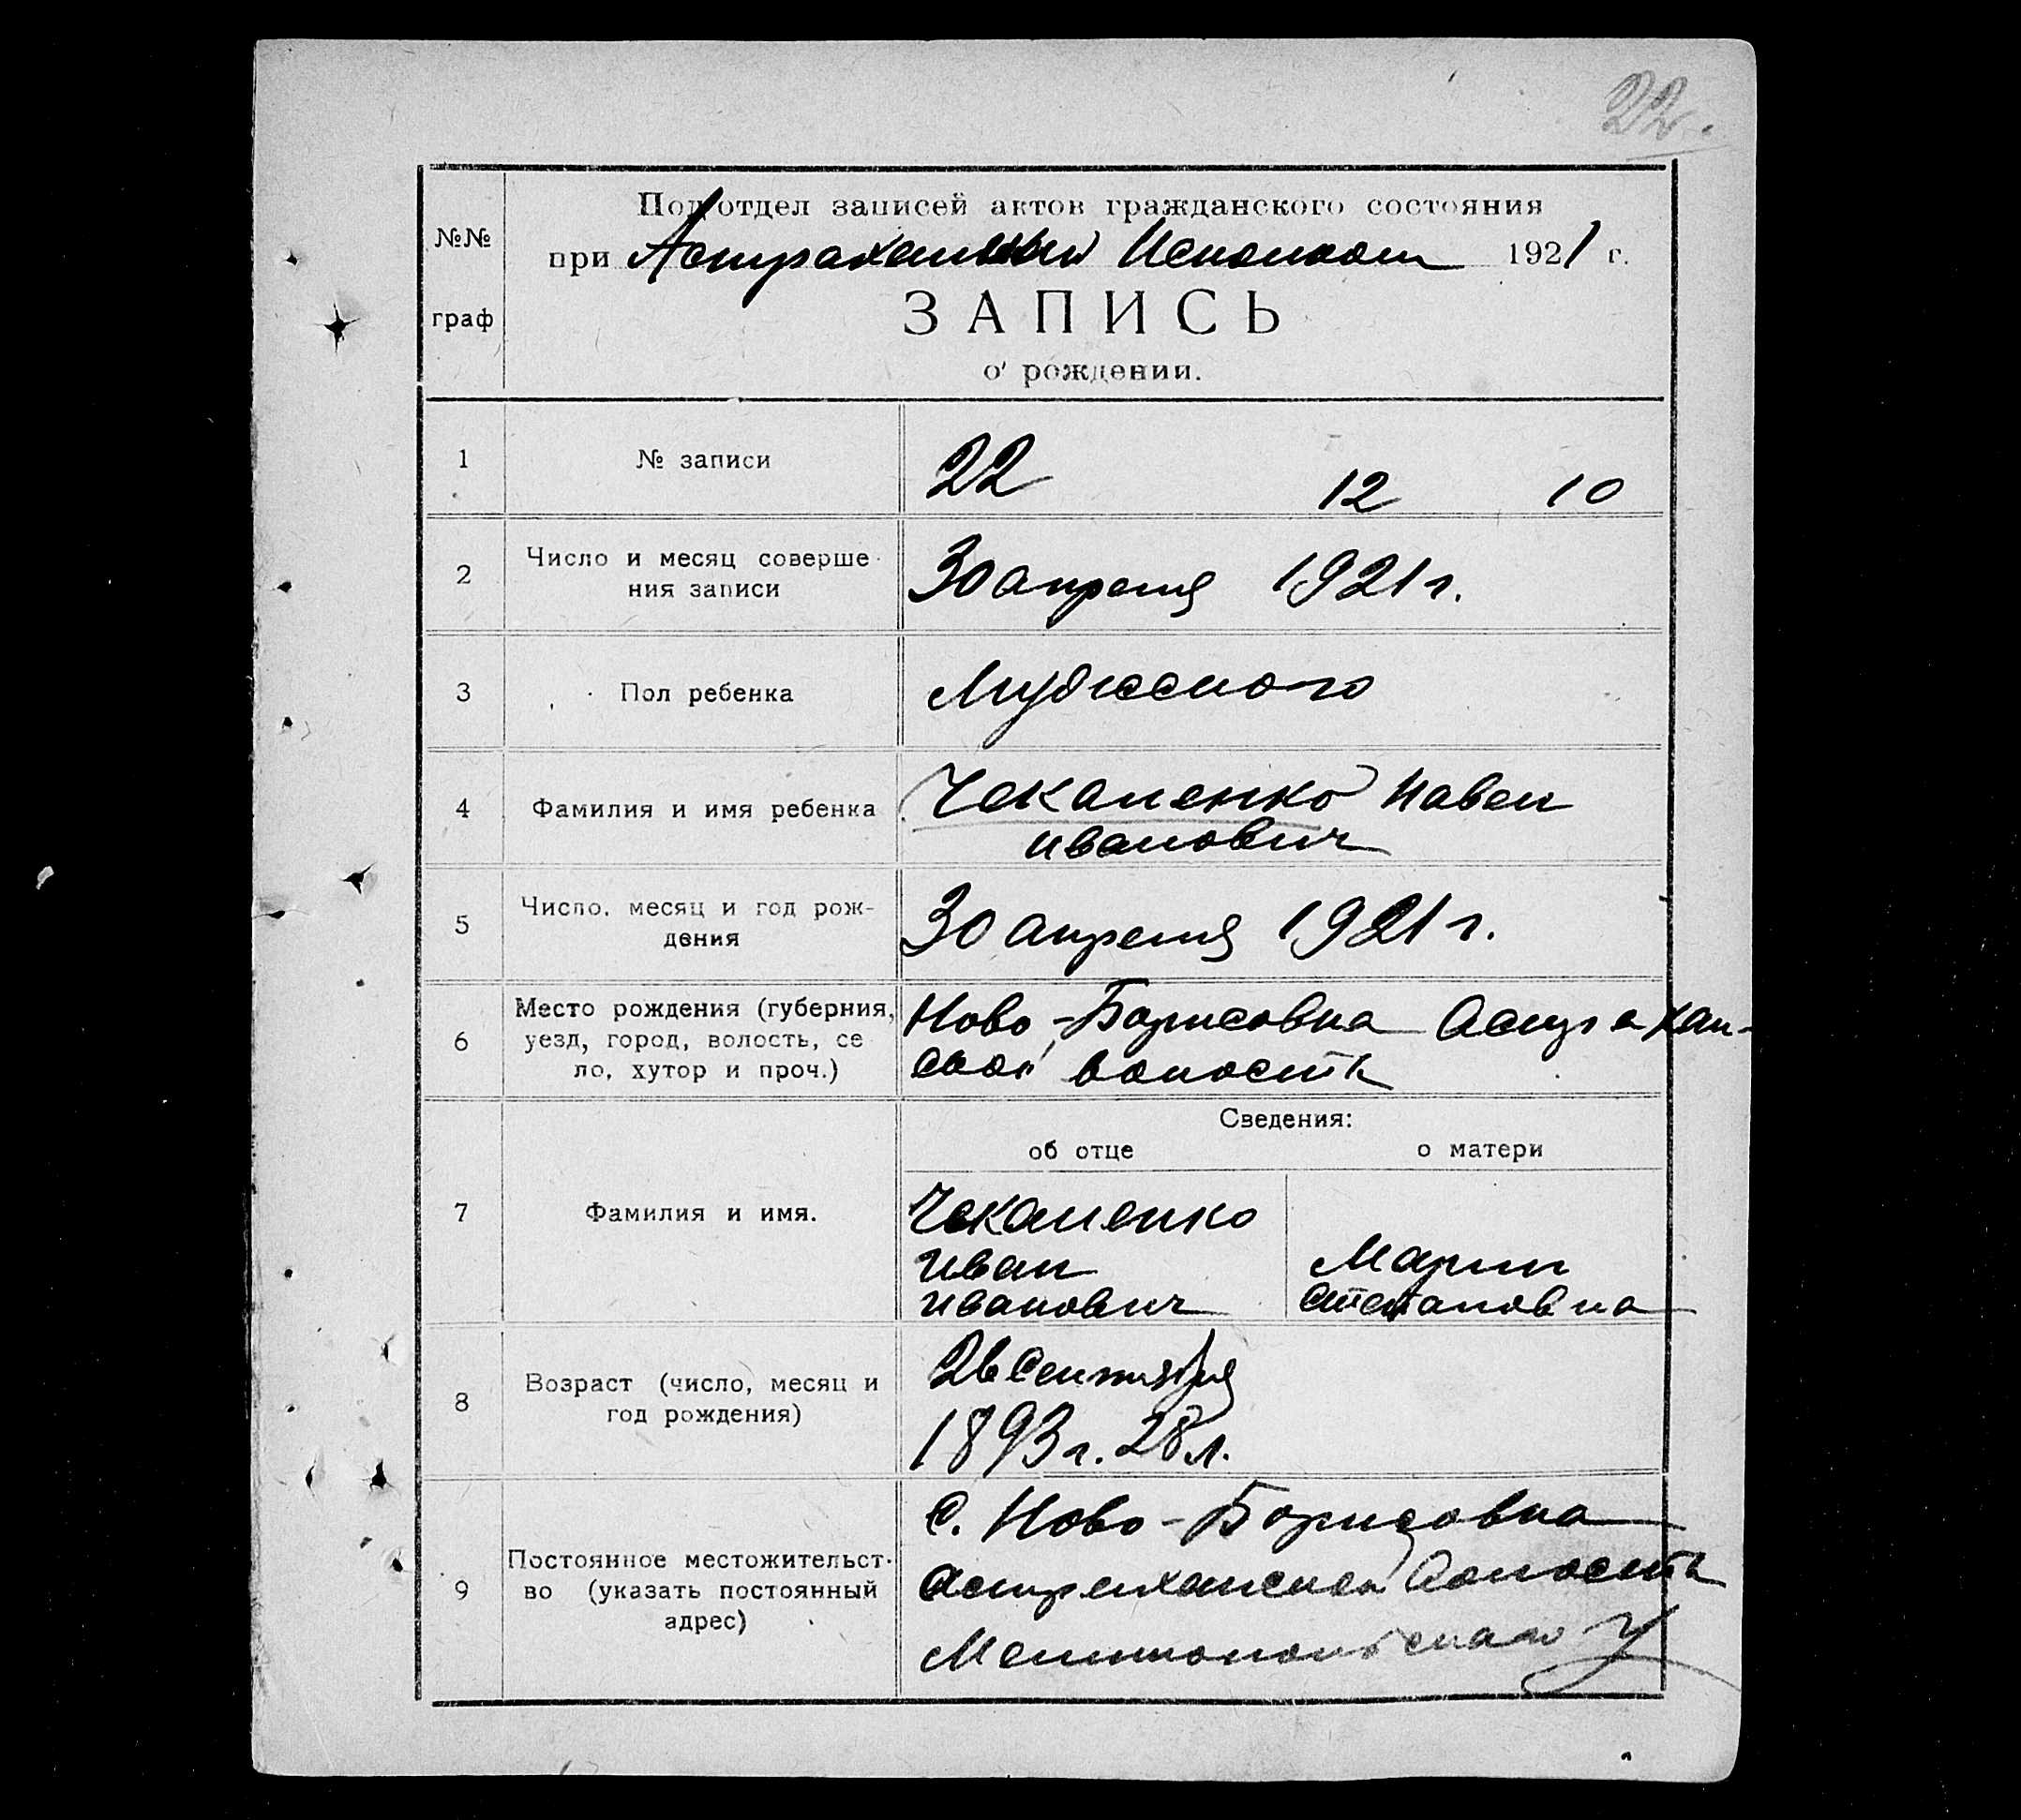 22.
№№ граф
Подотдел записей актов гражданского состояния
при Астраханском Исполком 1921 г.
ЗАПИСЬ
о рождении.
1 № записи 22 12 10
2 Число и месяц соверше-
ния записи 30 апреля 1921 г.
3 Пол ребенка Мужеского
4 Фамилия и имя ребенка Чекаленко Павел
Иванович
5 Число, месяц и год рож-
дения 30 апреля 1921 г.
6 Место рождения (губерния,
уезд, город, волость, се
ло, хутор и проч.) Ново-Борисовка Астрахан-
ской волости
Сведения:
об отце о матери
7 Фамилия и имя. Чекаленко
Иван
Иванович
Мария
Степановна
8 Возраст (число, месяц и
год рождения) 26 Сентября
1893 г. 28 л.
9 Постоянное местожительст-
во (указать постоянный
адрес) С. Ново-Борисовка
Астраханской волости
Мелитопольского у